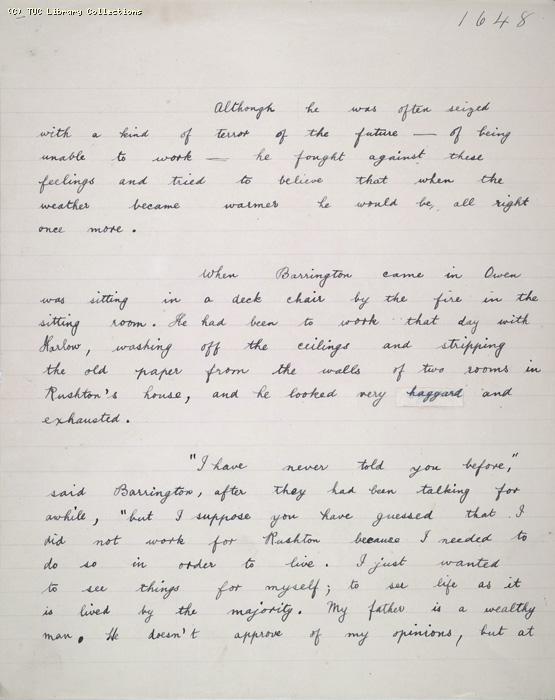 (C) TUC Library Collections
1648
Although he was often seized
with a kind of terror of the future — of being
unable to work — he fought against these
feelings and tried to believe that when the
weather became warmer he would be, all right
once more.
When Barrington came in Owen
was sitting in a deck chair by the fire in the
sitting room. He had been to work that day with
Harlow, washing off the ceilings and stripping
the old paper from the walls of two rooms in
Rushton's house, and he looked very haggard and
exhausted.
"I have never told you before,"
said Barrington, after they had been talking for
awhile, "but I suppose you have guessed that I
did not work for Rushton because I needed to
do so in order to live. I just wanted
to see things for myself; to see life as it
is lived by the majority. My father is a wealthy
man. He doesn't approve of my opinions, but at